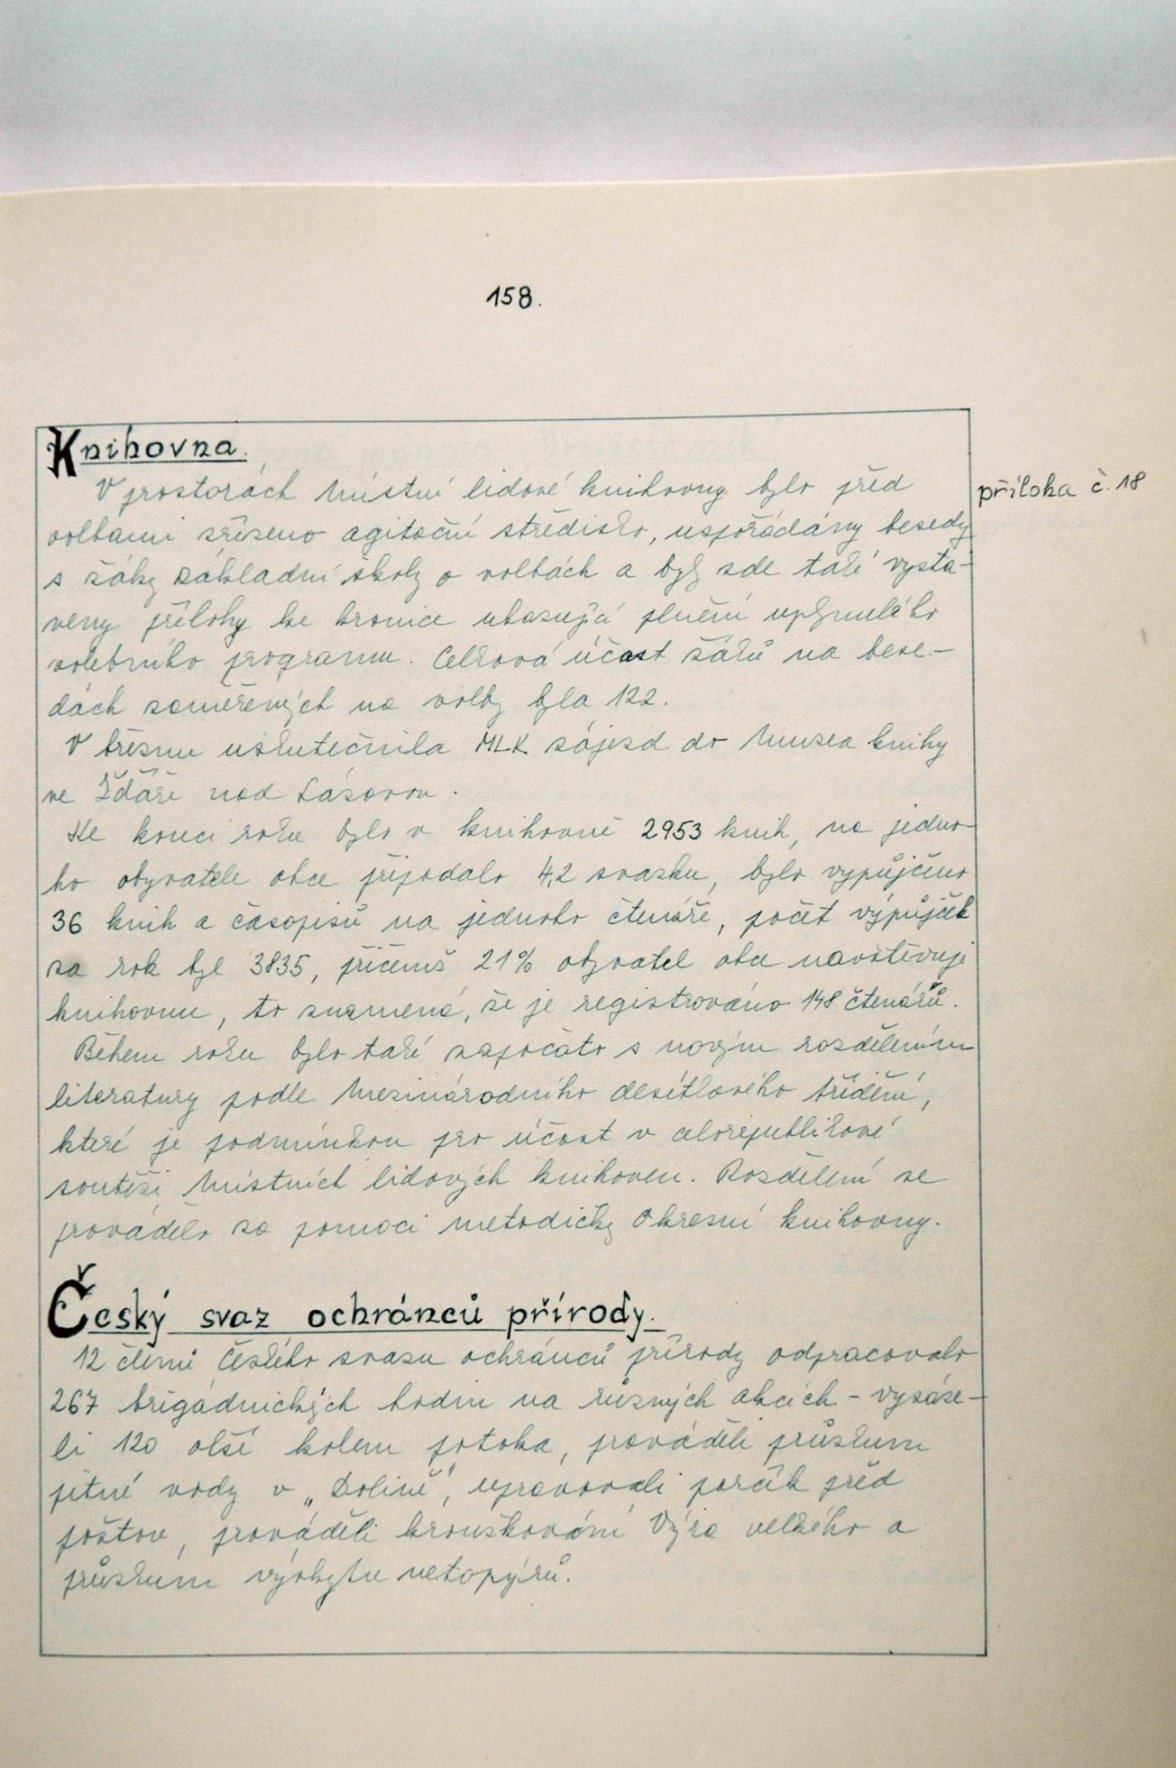 158.
Knihovna.
V prostorách Místní lidové knihovny bylo před
příloha č. 18
volbami zřízeno agitační středisko, uspořádány besedy
s žáky základní školy o volbách a byly zde také vysta-
veny přílohy ke kronice ukazující plnění uplynulého
volebního programu. Celková účast žáků na bese-
dách zaměřených na volby byla 122.
V březnu uskutečnila MLK zájezd do Muzea knihy
ve Žďáře nad Sázavou.
Ke konci roku bylo v knihovně 2953 knih, na jedno-
ho obyvatele obce připadalo 4,2 svazku, bylo vypůjčeno
36 knih a časopisů na jednoho čtenáře, počet výpůjček
za rok byl 3835, přičemž 21% obyvatel obce navštěvuje
knihovnu, to znamená, že je registrováno 148 čtenářů.
Během roku bylo také započato s novým rozdělením
literatury podle Mezinárodního desetilového třídění,
které je podmínkou pro účast v celorepublikové
soutěži Místních lidových knihoven. Rozdělení se
provádělo za pomoci metodičky Okresní knihovny.
Český svaz ochránců přírody.
12 členů Českého svazu ochránců přírody odpracovalo
267 brigádnických hodin na různých akcích - vysáze-
li 120 olší kolem potoka, prováděli průzkum
pitné vody v „Dolině", upravovali parčík před
poštou, prováděli kroužkování Výra velkého a
průzkum výskytu netopýrů.